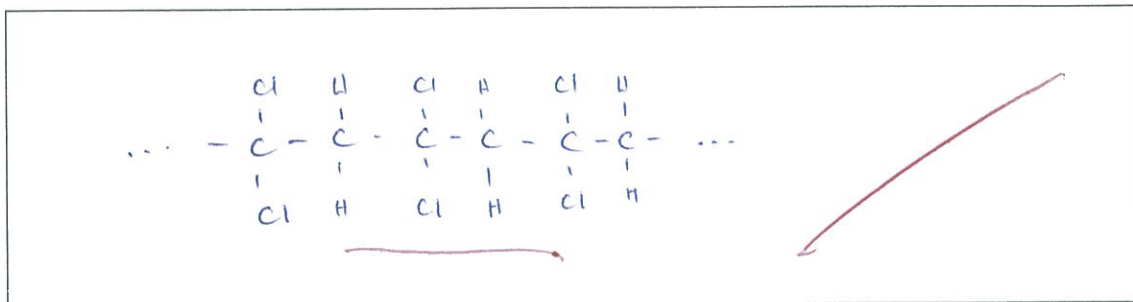 Cl H Cl H Cl H
... - C - C - C - C - C - C - ...
Cl H Cl H Cl H